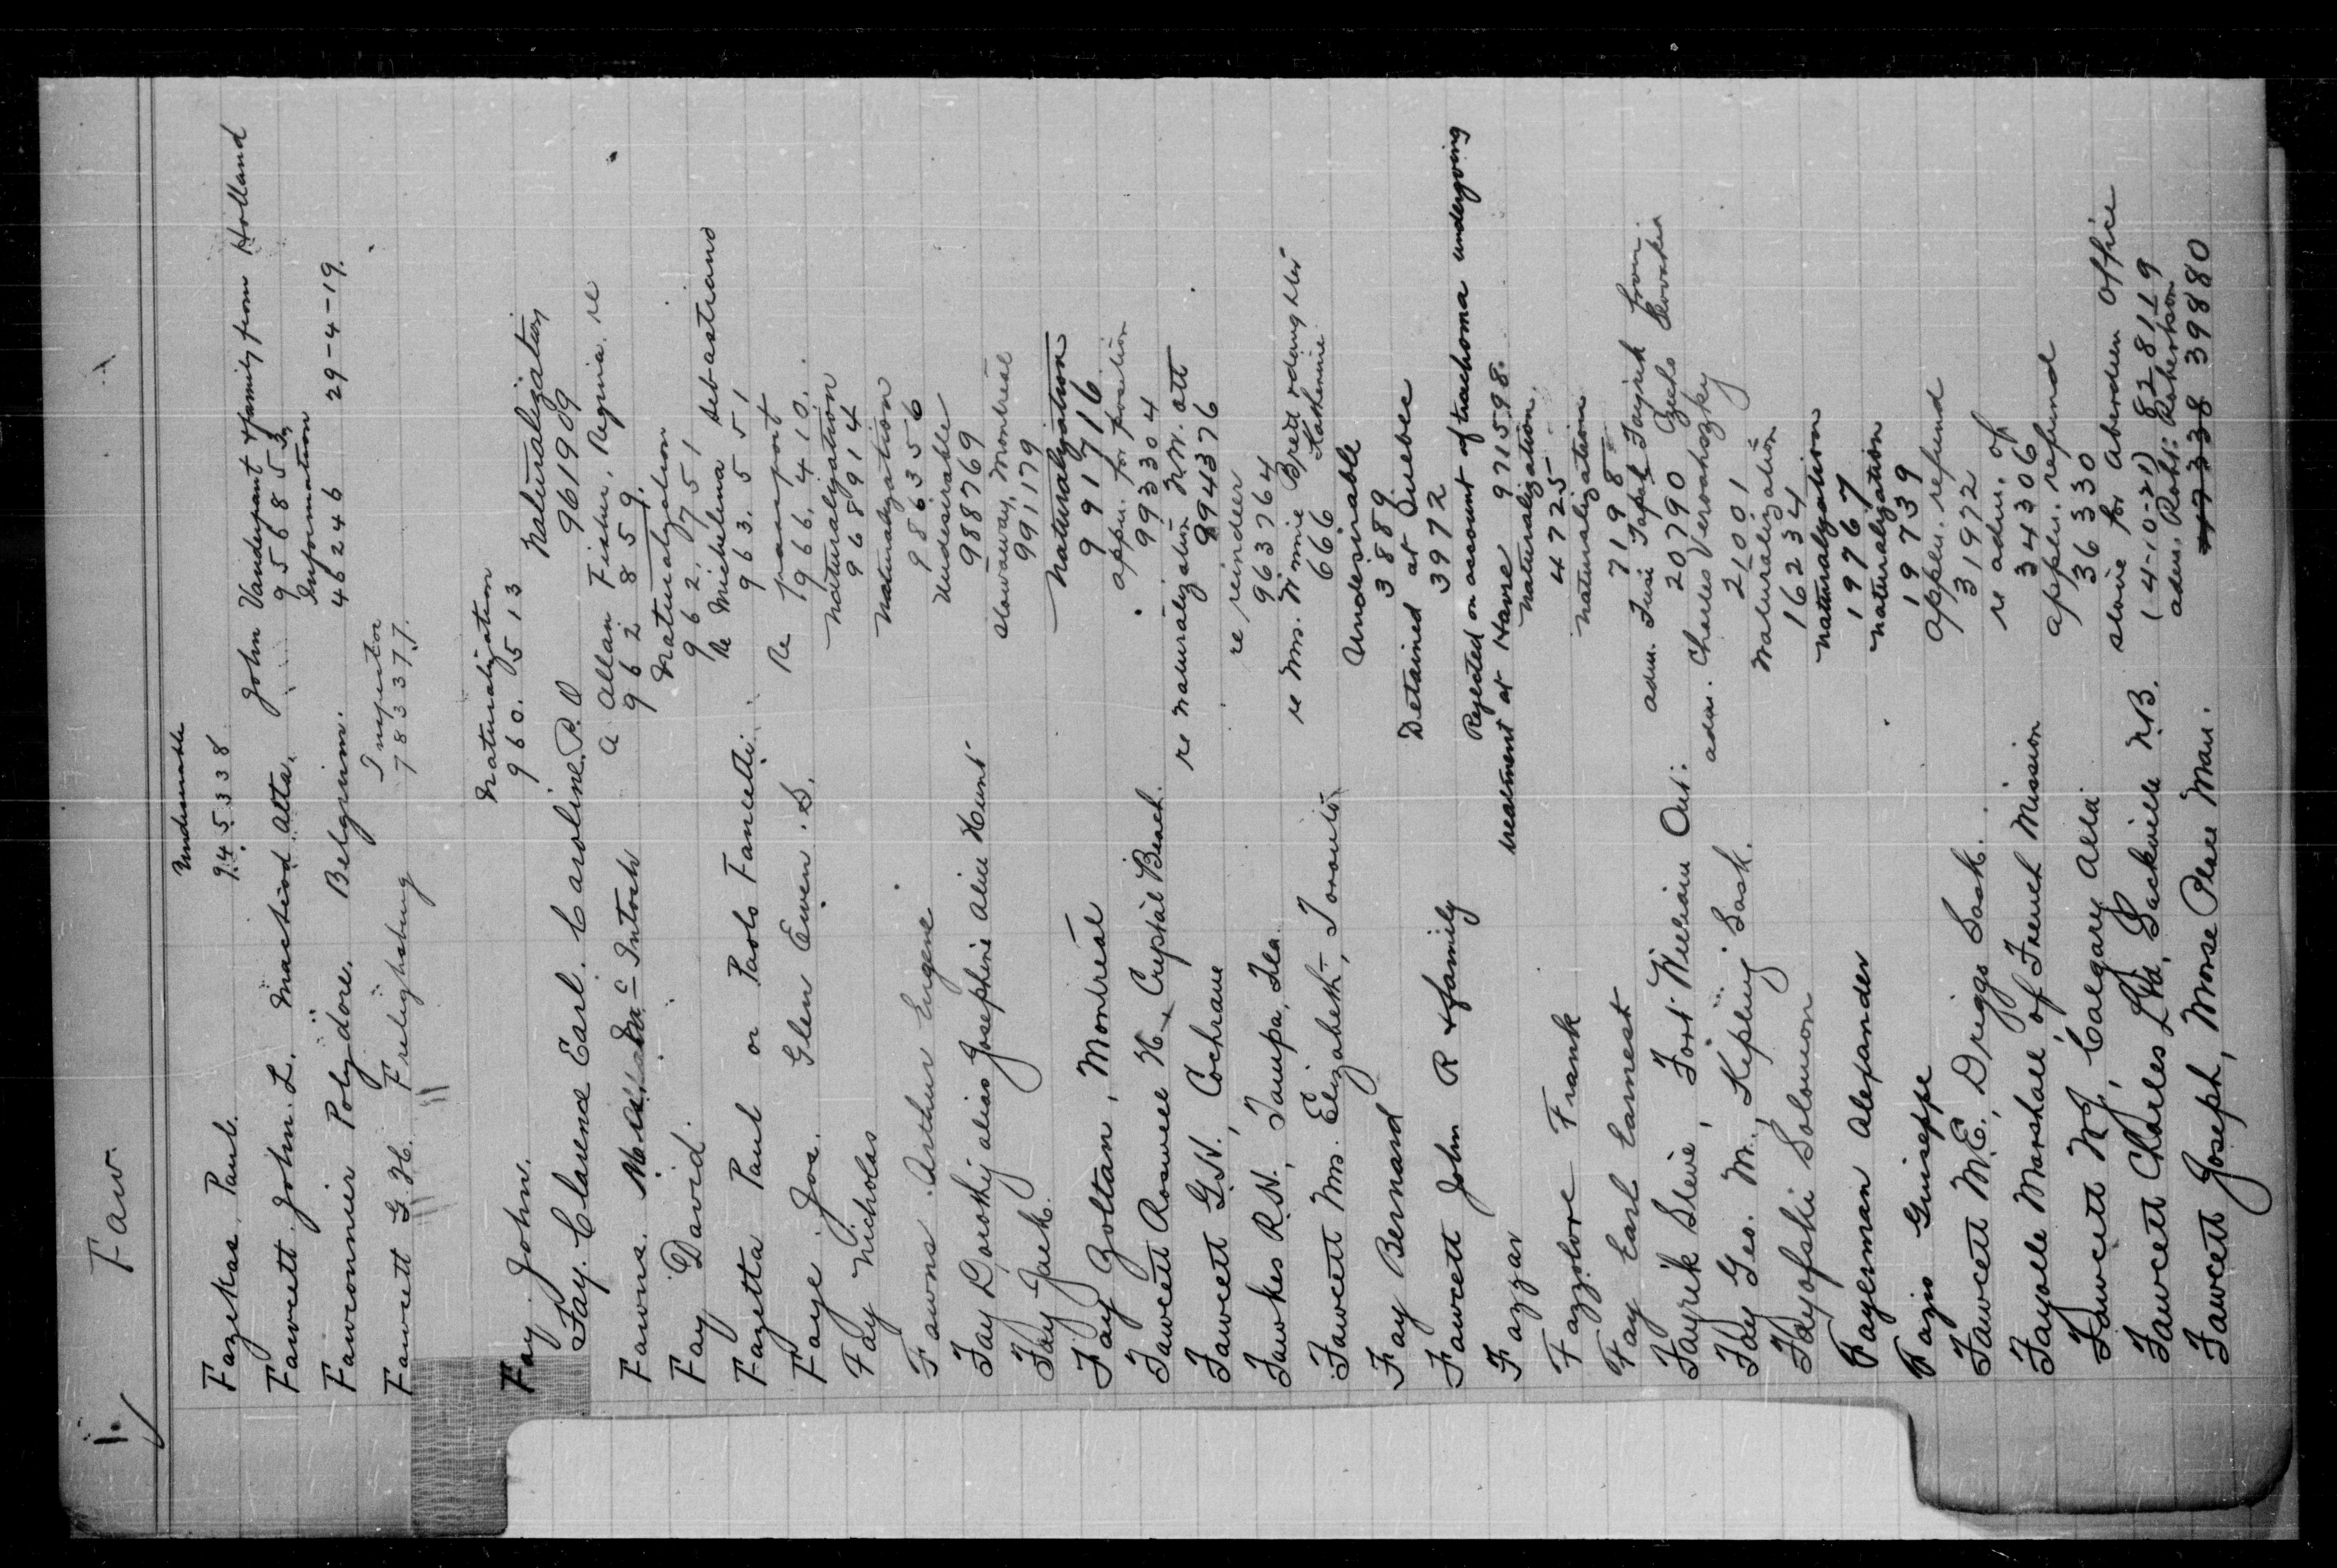 1. Faw.
Undesirable
Fazekas, Paul. 945338
Fawcett. John. L. Macleod Alta. John Vanderpant & family from Holland
956853
Information
Fawconnier Polydore. Belgium. 46246 29-4-19.
Inspector
Fawcett G. H. Frelighsburg 783377.
Naturalization
Fay. John. 960.513
Naturalization
Fay. Clarence Earl. Caroline. P.O 961909
a. Allan Fisher, Regina. re
Fawns. McIntosh 962859.
Naturalization
Fay David. 962,751
Re Michelina Sebastiano
Fazetta Paul or Paolo Fancelli 963.551
Re passport
Faye Jos. Glen Ewen. S. 966,410.
Naturalization
Fay Nicholas 968914
Naturalization
Fawns Arthur Eugene 986356
Undesirable
Fay Dorothy alias Josephine Alice Hunt 988769
stowaway, Montreal
Fay Jack. 991,179
Naturalization
Fay Zoltan, Montreal 991716
appn. for position
Fawcett Roswell H. Crystal Beach. 993304
re naturalization N.W. Ott
Fawcett G.N., Cochrane 994376
re reindeer
Fawkes R.N., Tampa, Fla. 963764
re Mrs. Winnie Brett & daughter Katherine
Fawcett Mrs. Elizabeth, Toronto 666
Undesirable
Fay Bernard 3889
Detained at Quebec
Fawcett John R & family 3972
Rejected on account of trachoma undergoing
Fazzar treatment at Havre 971598.
naturalization.
Fazzolore Frank 4725
naturalization
Fay Earl Earnest 7198
adm. Jusi Fapal Fayrik from
Fayrik Steve, Fort William Ont: 20790 Czecho Slovakia
adm. Charles Verovhoszky
Fay Geo. M., Kipling Sask. 21001
Naturalization
Fayofski Solomon 16234
naturalization
Fayerman Alexander 19767
naturalization
Fazio Guiseppe 19739
appln. refund
Fawcett M.E., Driggs Sask. 31972
re adm. of
Fayolle Marshall, of French Mission 34306
appln. refund
Fawcett N.J., Calgary Alta 36330
slave for Aberdeen Office
Fawcett Charles Ltd, Sackville N.B. (4-10-21) 828119
adm. Robt: Robertson
Fawcett Joseph, Morse Place Man. 39880